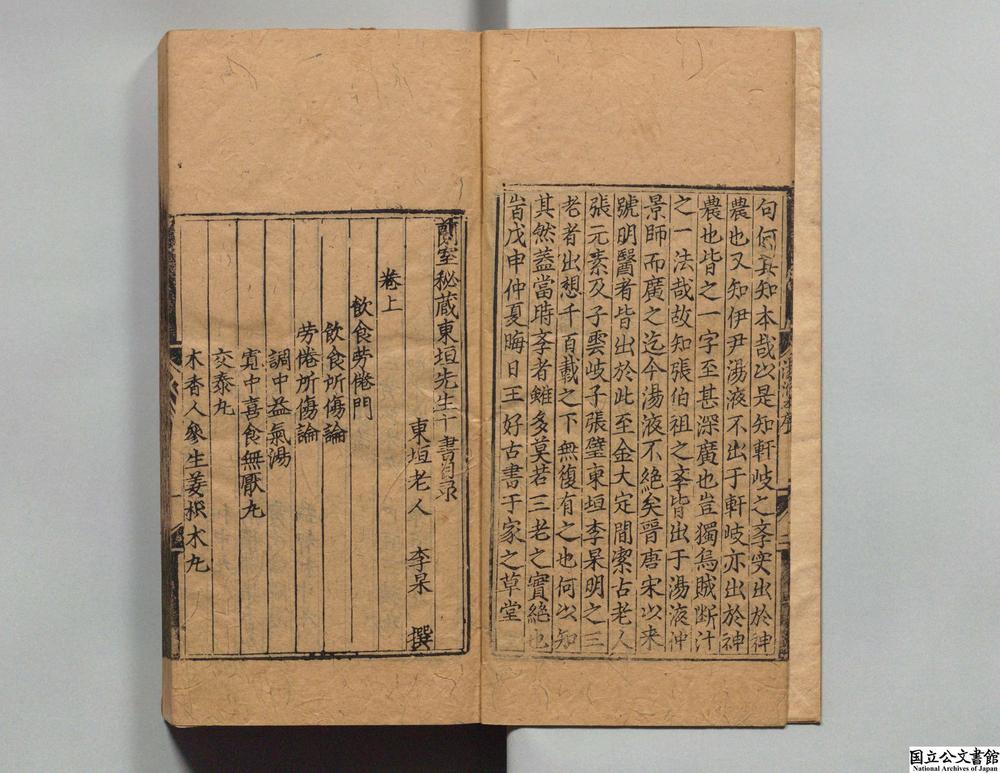 句何其知本哉以是知軒岐之孝实出於神
農也又知伊尹湯液不出于軒岐亦出於神
農也皆之一字至甚深廣也豈獨烏賊断汁
之一法哉故知張伯祖之孝皆出于湯液仲
景師而廣之迄今湯液不絶矣晉唐宋以来
號明醫者皆出於此至金大定間潔古老人
張元素及子雲岐子張璧東垣李杲明之三
老者出想千百載之下無復有之也何以知
其然葢當時孝者雖多莫若三老之實絶也
旹戊申仲夏晦日王好古書于家之草堂
蘭室秘蔵東垣先生十書目录
東垣老人 李杲 撰
卷上
飲食劳倦門
飲食所傷論
劳倦所傷論
調中益氣湯
寛中喜食無厭丸
交泰丸
木香人參生姜枳木丸
国立公文書館
National Archives of Japan